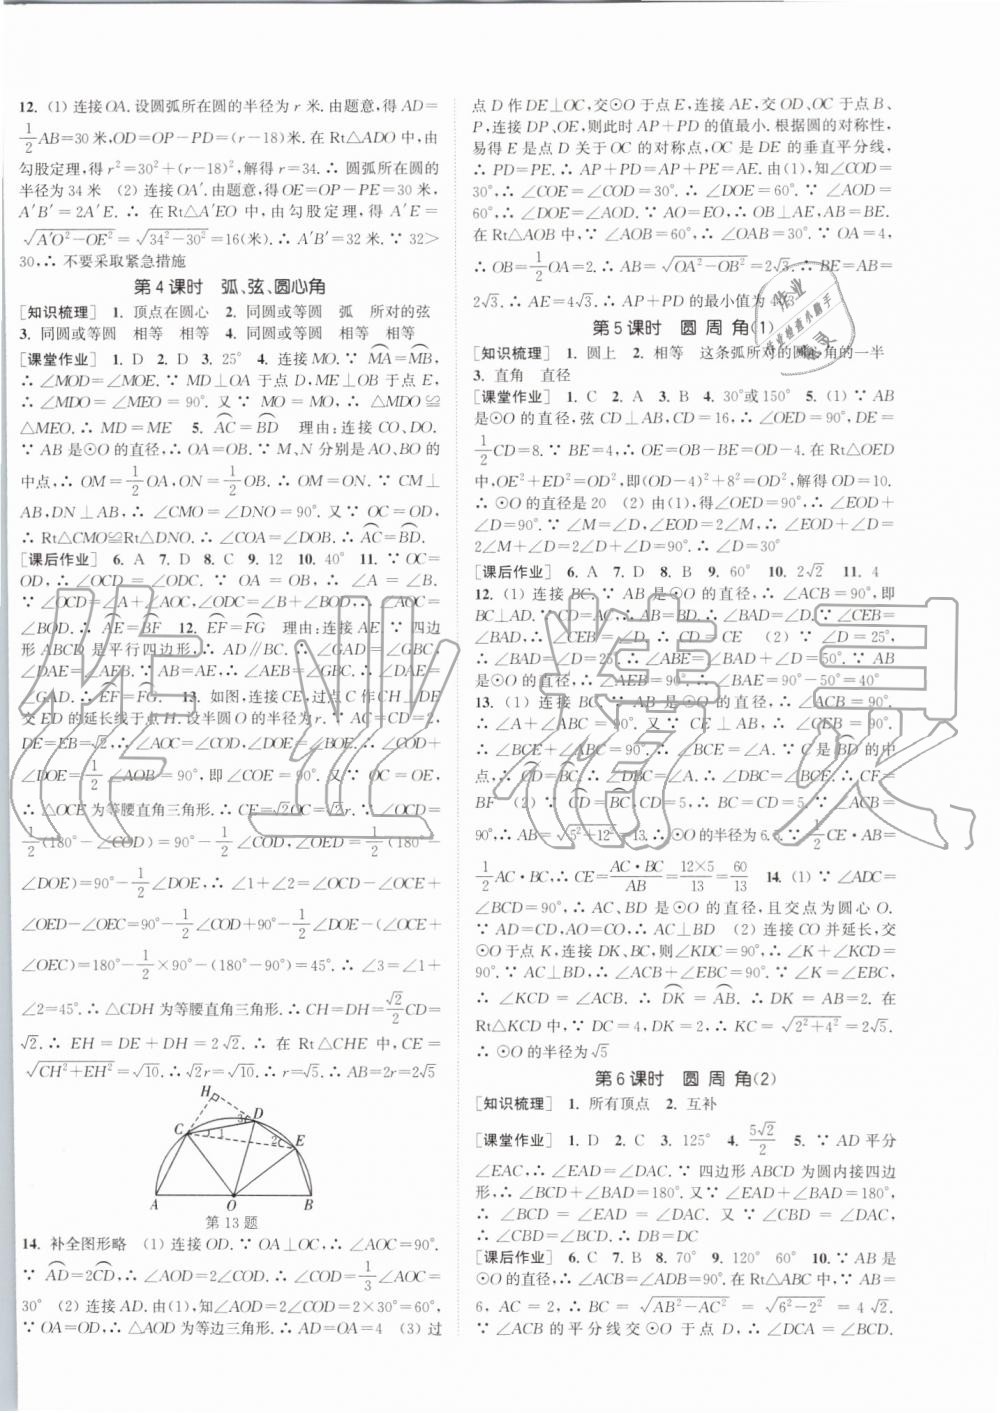 12. (1) 连接OA. 设圆弧所在圆的半径为 r 米. 由题意, 得 AD=
1/2AB=30 米, OD=OP－PD=(r－18)米. 在 Rt△ADO 中, 由
勾股定理, 得 r²=30²+(r－18)², 解得 r=34. ∴ 圆弧所在圆的
半径为 34 米 (2) 连接OA′. 由题意, 得 OE=OP－PE=30 米,
A′B′=2A′E. ∴ 在 Rt△A′EO 中, 由勾股定理, 得 A′E=
√(A′O²－OE²)=√(34²－30²)=16(米). ∴ A′B′=32 米. ∵ 32>
30, ∴ 不要采取紧急措施
第 4 课时 弧、弦、圆心角
[知识梳理] 1. 顶点在圆心 2. 同圆或等圆 弧 所对的弦
3. 同圆或等圆 相等 相等 4. 同圆或等圆 相等 相等
[课堂作业] 1. D 2. D 3. 25° 4. 连接 MO. ∵ ⌒MA=⌒MB,
∴ ∠MOD=∠MOE. ∵ MD⊥OA 于点 D, ME⊥OB 于点 E,
∴ ∠MDO=∠MEO=90°. 又∵ MO=MO, ∴ △MDO≌
△MEO. ∴ MD=ME 5. ⌒AC=⌒BD 理由: 连接 CO、DO.
∵ AB 是⊙O 的直径, ∴ OA=OB. ∵ M、N 分别是 AO、BO 的
中点, ∴ OM=1/2OA, ON=1/2OB. ∴ OM=ON. ∵ CM⊥
AB, DN⊥AB, ∴ ∠CMO=∠DNO=90°. 又∵ OC=OD,
∴ Rt△CMO≌Rt△DNO. ∴ ∠COA=∠DOB. ∴ ⌒AC=⌒BD.
[课后作业] 6. A 7. D 8. C 9. 12 10. 40° 11. ∵ OC=
OD, ∴ ∠OCD=∠ODC. ∵ OA=OB, ∴ ∠A=∠B.
∵ ∠OCD=∠A+∠AOC, ∠ODC=∠B+∠BOD, ∴ ∠AOC=
∠BOD. ∴ ⌒AE=⌒BF 12. ⌒EF=⌒FG 理由: 连接 AE. ∵ 四边
形 ABCD 是平行四边形, ∴ AD∥BC. ∴ ∠GAD=∠GBC,
∠DAE=∠AEB. ∵ AB=AE, ∴ ∠AEB=∠GBC. ∴ ∠DAE=
∠GAD. ∴ ⌒EF=⌒FG. 13. 如图, 连接 CE, 过点 C 作 CH⊥DE
交 ED 的延长线于点 H. 设半圆 O 的半径为 r. ∵ AC=CD=2,
DE=EB=√2, ∴ ∠AOC=∠COD, ∠DOE=∠BOE. ∴ ∠COD+
∠DOE=1/2∠AOB=90°, 即∠COE=90°. 又∵ OC=OE,
∴ △OCE 为等腰直角三角形. ∴ CE=√2OC=√2r. ∵ ∠OCD=
1/2(180°－∠COD)=90°－1/2∠COD, ∠OED=1/2(180°－
∠DOE)=90°－1/2∠DOE, ∴ ∠1+∠2=∠OCD－∠OCE+
∠OED－∠OEC=90°－1/2∠COD+90°－1/2∠DOE－(∠OCE+
∠OEC)=180°－1/2×90°－(180°－90°)=45°. ∴ ∠3=∠1+
∠2=45°. ∴ △CDH 为等腰直角三角形. ∴ CH=DH=√2/2CD=
√2. ∴ EH=DE+DH=2√2. ∴ 在 Rt△CHE 中, CE=
√(CH²+EH²)=√10. ∴ √2r=√10. ∴ r=√5. ∴ AB=2r=2√5
H
D
3
C
1
2
E
A
O
B
第 13 题
14. 补全图形略 (1) 连接 OD. ∵ OA⊥OC, ∴ ∠AOC=90°.
∵ ⌒AD=2⌒CD, ∴ ∠AOD=2∠COD. ∴ ∠COD=1/3∠AOC=
30° (2) 连接 AD. 由(1), 知∠AOD=2∠COD=2×30°=60°,
∵ OA=OD, ∴ △AOD 为等边三角形. ∴ AD=OA=4 (3) 过
点 D 作 DE⊥OC, 交⊙O 于点 E, 连接 AE, 交 OD、OC 于点 B、
P, 连接 DP、OE, 则此时 AP+PD 的值最小. 根据圆的对称性,
易得 E 是点 D 关于 OC 的对称点, OC 是 DE 的垂直平分线,
∴ PD=PE. ∴ AP+PD=AP+PE=AE. 由(1), 知∠COD=
30°, ∴ ∠COE=∠COD=30°. ∴ ∠DOE=60°. ∵ ∠AOD=
60°, ∴ ∠DOE=∠AOD. ∵ AO=EO, ∴ OB⊥AE, AB=BE.
在 Rt△AOB 中, ∵ ∠AOB=60°, ∴ ∠OAB=30°. ∵ OA=4,
∴ OB=1/2OA=2. ∴ AB=√(OA²－OB²)=2√3. ∴ BE=
2√3. ∴ AE=4√3. ∴ AP+PD 的最小值为 4√3
第 5 课时 圆 周 角(1)
[知识梳理] 1. 圆上 2. 相等 这条弧所对的圆心角的一半
3. 直角 直径
[课堂作业] 1. C 2. A 3. B 4. 30°或150° 5. (1) ∵ AB
是⊙O 的直径, 弦 CD⊥AB, CD=16, ∴ ∠OED=90°, DE=
1/2CD=8. ∵ BE=4, ∴ OE=OB－BE=OD－4. 在 Rt△OED
中, OE²+ED²=OD², 即(OD－4)²+8²=OD², 解得 OD=10.
∴ ⊙O 的直径是 20 (2) 由(1), 得∠OED=90°, ∴ ∠EOD+
∠D=90°. ∵ ∠M=∠D, ∠EOD=2∠M, ∴ ∠EOD+∠D=
2∠M+∠D=2∠D+∠D=90°. ∴ ∠D=30°
[课后作业] 6. A 7. D 8. B 9. 60° 10. 2√2 11. 4
12. (1) 连接 BC. ∵ AB 是⊙O 的直径, ∴ ∠ACB=90°, 即
BC⊥AD. ∵ CD=AC, ∴ AB=BD. ∴ ∠BAD=∠D. ∵ ∠CEB=
∠BAD, ∴ ∠CEB=∠D. ∴ CD=CE (2) ∵ ∠D=25°,
∴ ∠BAD=∠D=25°. ∴ ∠ABE=∠BAD+∠D=50°. ∵ AB
是⊙O 的直径, ∴ ∠AEB=90°. ∴ ∠BAE=90°－50°=40°
13. (1) 连接 BC. ∵ AB 是⊙O 的直径, ∴ ∠ACB=90°.
∴ ∠A+∠ABC=90°. 又∵ CE⊥AB, ∴ ∠CEB=90°.
∴ ∠BCE+∠ABC=90°. ∴ ∠BCE=∠A. ∵ C 是⌒BD的中
点, ∴ ⌒CD=⌒BC. ∴ ∠DBC=∠A. ∴ ∠DBC=∠BCE. ∴ CF=
BF (2) ∵ ⌒CD=⌒BC, CD=5, ∴ BC=CD=5. ∵ ∠ACB=
90°, ∴ AB=√(5²+12²)=13. ∴ ⊙O 的半径为 6.5. ∵ 1/2CE·AB=
1/2AC·BC, ∴ CE=AC·BC/AB=12×5/13=60/13 14. (1) ∵ ∠ADC=
∠BCD=90°, ∴ AC、BD 是⊙O 的直径, 且交点为圆心 O.
∵ AD=CD, AO=CO, ∴ AC⊥BD (2) 连接 CO 并延长, 交
⊙O 于点 K, 连接 DK、BC, 则∠KDC=90°. ∴ ∠K+∠KCD=
90°. ∵ AC⊥BD, ∴ ∠ACB+∠EBC=90°. ∵ ∠K=∠EBC,
∴ ∠KCD=∠ACB. ∴ ⌒DK=⌒AB. ∴ DK=AB=2. 在
Rt△KCD 中, ∵ DC=4, DK=2, ∴ KC=√(2²+4²)=2√5.
∴ ⊙O 的半径为√5
第 6 课时 圆 周 角(2)
[知识梳理] 1. 所有顶点 2. 互补
[课堂作业] 1. D 2. C 3. 125° 4. 5√2/2 5. ∵ AD 平分
∠EAC, ∴ ∠EAD=∠DAC. ∵ 四边形 ABCD 为圆内接四边
形, ∴ ∠BCD+∠BAD=180°. 又∵ ∠EAD+∠BAD=180°,
∴ ∠BCD=∠EAD=∠DAC. 又∵ ∠CBD=∠DAC,
∴ ∠CBD=∠BCD. ∴ DB=DC
[课后作业] 6. C 7. B 8. 70° 9. 120° 60° 10. ∵ AB 是
⊙O 的直径, ∴ ∠ACB=∠ADB=90°. 在 Rt△ABC 中, ∵ AB=
6, AC=2, ∴ BC=√(AB²－AC²)=√(6²－2²)=4√2.
∵ ∠ACB 的平分线交⊙O 于点 D, ∴ ∠DCA=∠BCD.
作业精灵